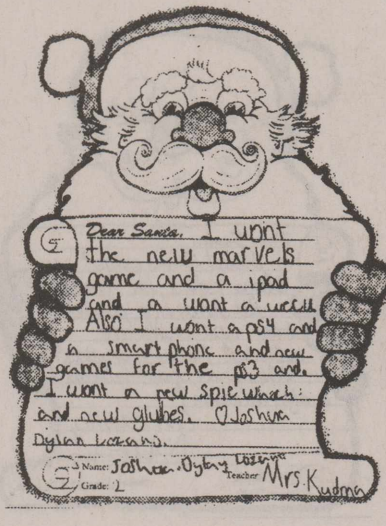 Dear Santa, I wont
the new marvels
game and a ipad
and a wont a
Also I wont a ps4 and
a smart phone and new
games for the ps3 and.
I wont a new spie
and new glubes. ♡Joshua
Dylan Lozano.
Name: Joshua. Dylan Lozano Teacher Mrs. Kudma
Grade: 2